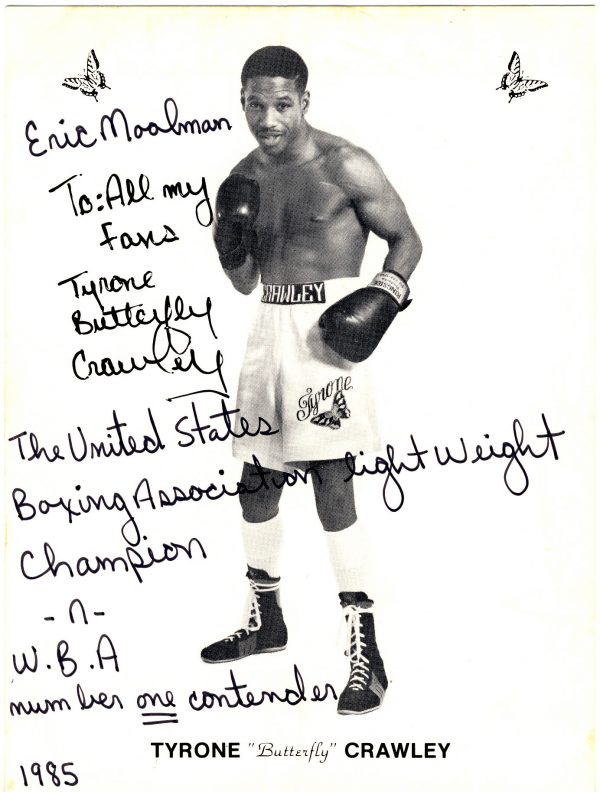 Eric Moolman
To: All my
Fans
Tyrone
Butterfly
Crawley
CRAWLEY
Tyrone
The United States
Boxing Association light Weight
Champion
-n-
W.B.A
number one contender
TYRONE "Butterfly" CRAWLEY
1985